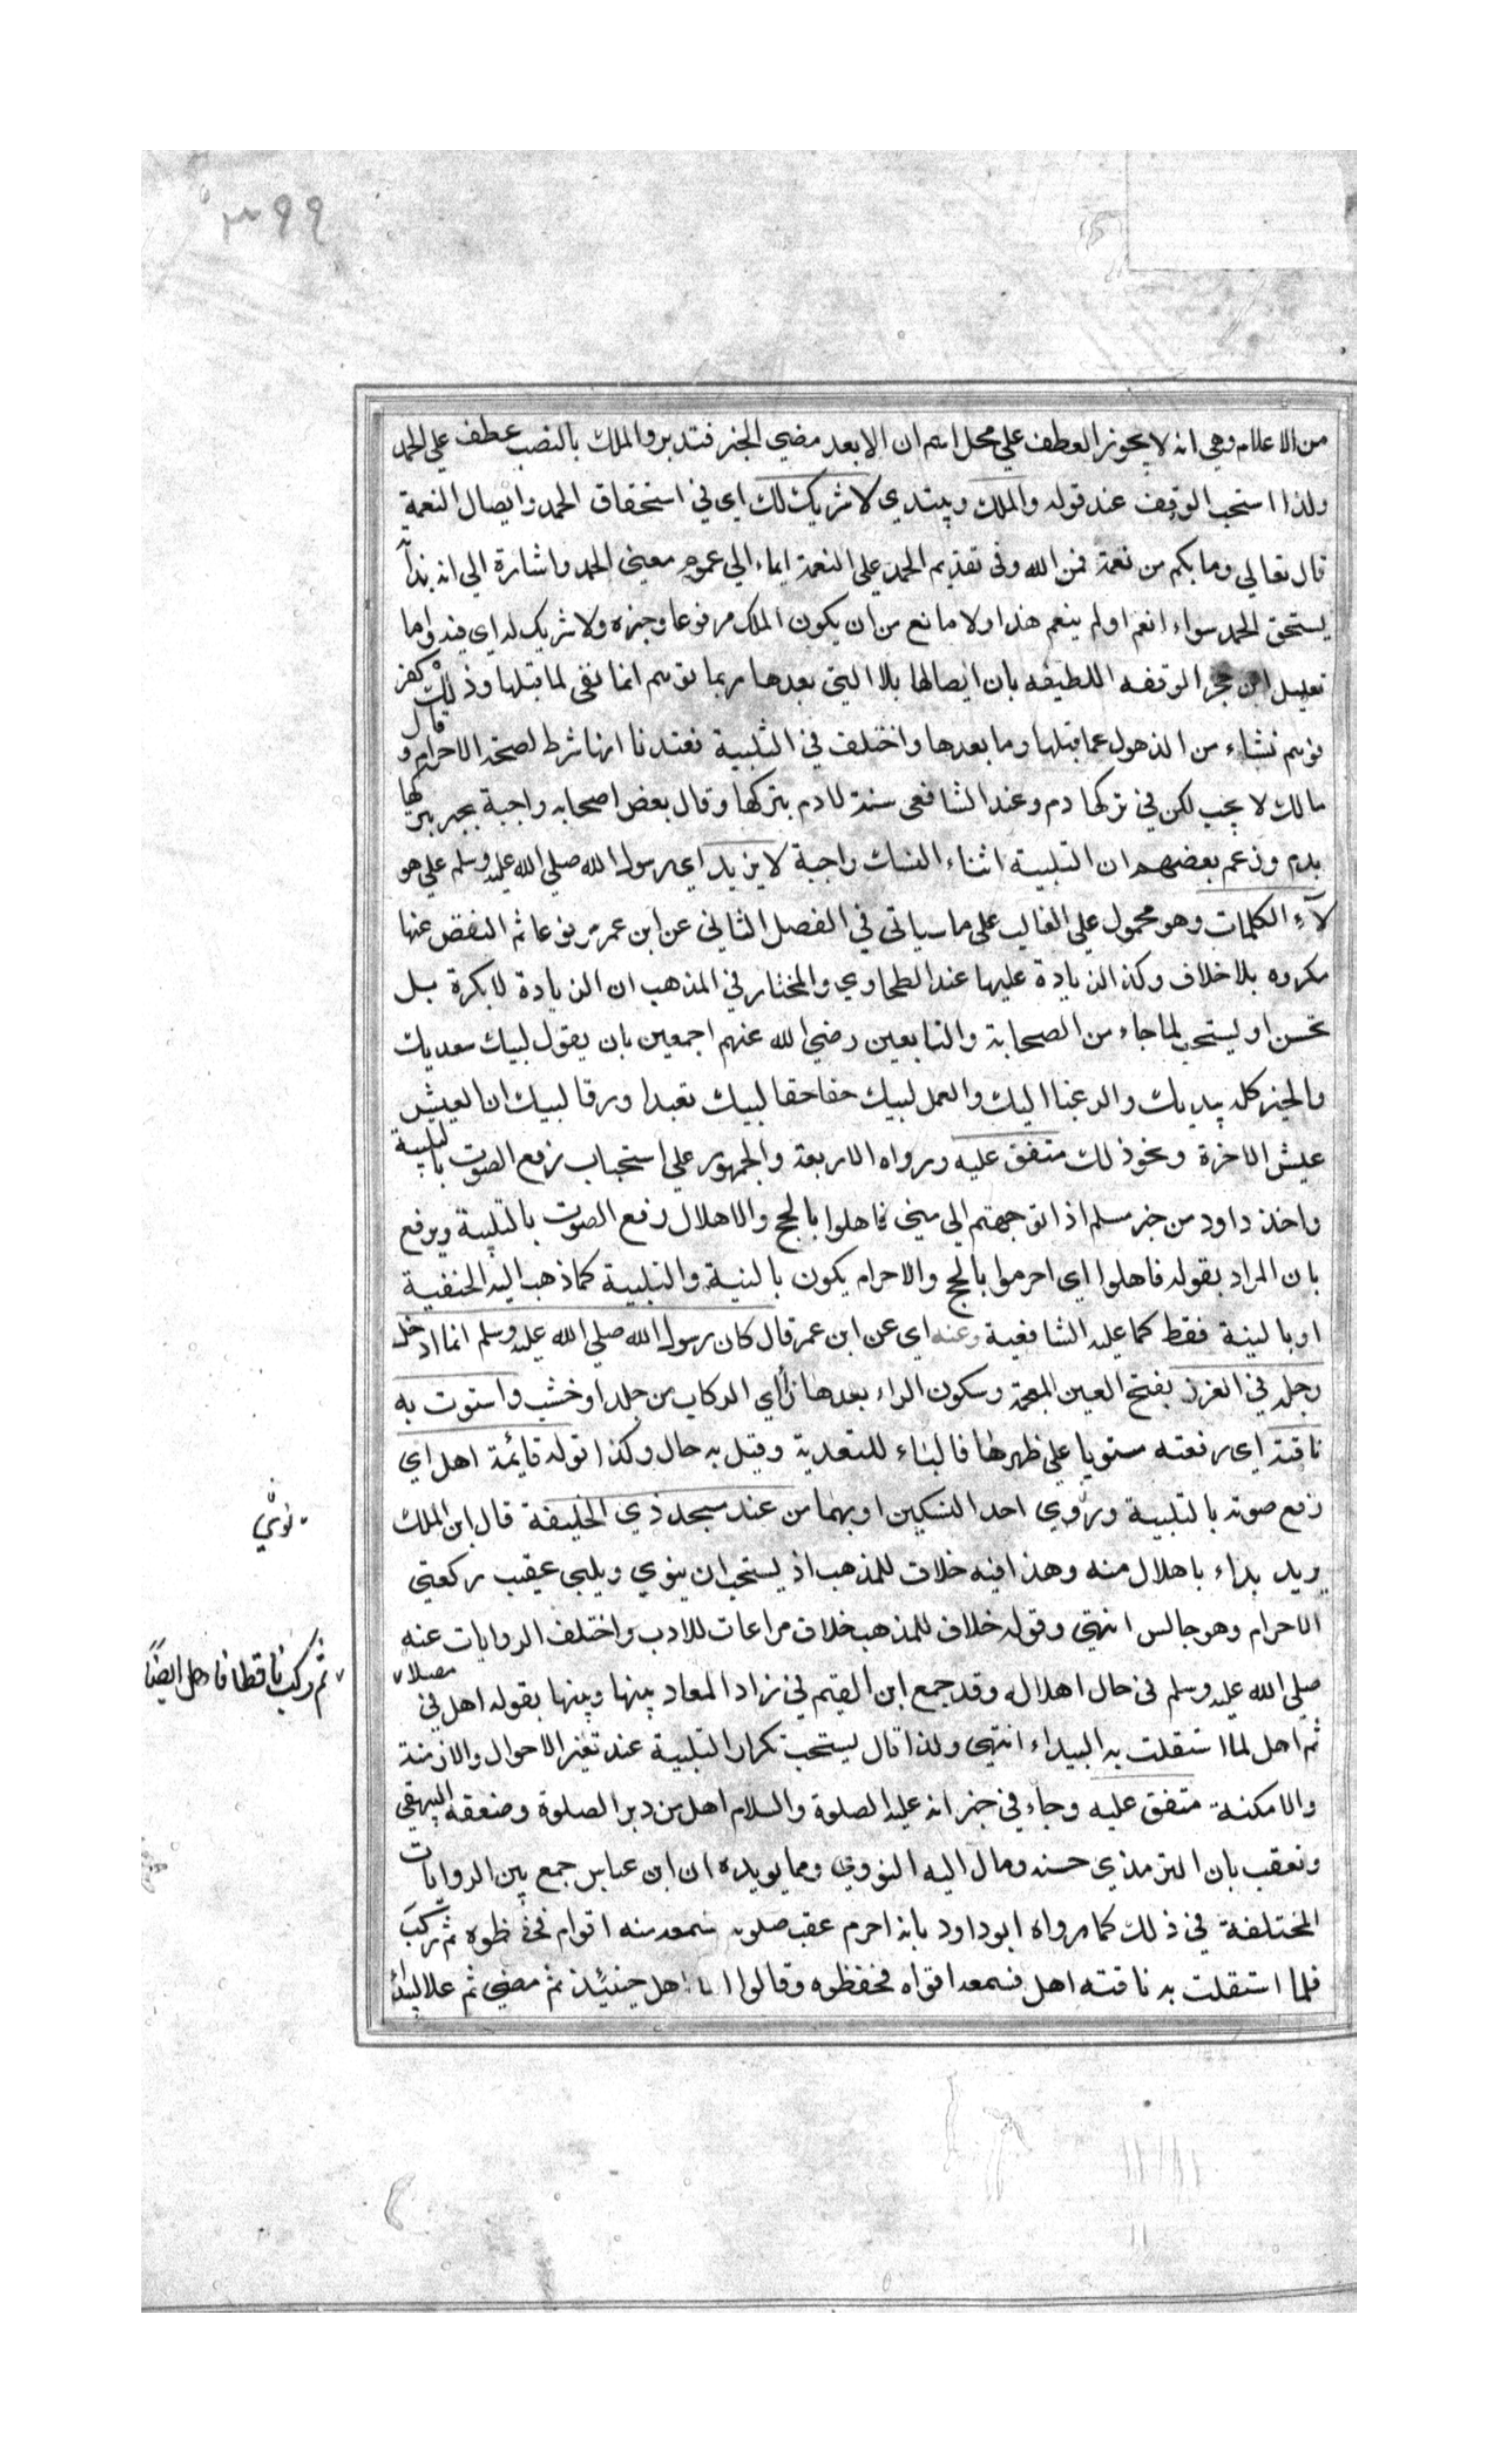 ٣٩٩
من الاعلام وهي انه لا يجوز العطف علي محل اسم ان الا بعد مضي الخبر فتدبر والملك بالنصب عطف علي الحمد
ولذا استحب الوقف عند قوله والملك ويبتدي لا شريك لك اي في استحقاق الحمد وايصال النعمة
قال تعالي وما بكم من نعمة فمن الله وفي تقديم الحمد علي النعمة ايماء الي عموم معني الحمد واشارة الي انه بذاته
يستحق الحمد سواء انعم اولم ينعم هذا ولا مانع من ان يكون الملك مرفوعا وخبره ولا شريك له اي فيه واما
تعليل ابن حجر الوقفه اللطيفه بان ايصالها بلا التي بعدها ربما توهم انها نفي لما قبلها وذلك كفر
فوهم نشاء من الذهول عما قبلها وما بعدها واختلف في التلبية فعندنا انها شرط لصحة الاحرام وقال
مالك لا يجب لكن في تركها دم وعند الشافعي سنة لا دم بتركها وقال بعض اصحابه واجبة يجبر تركها
بدم وزعم بعضهم ان التلبية اثناء النسك واجبة لا يزيد اي رسول الله صلي الله عليه وسلم علي هو
لآء الكلمات وهو محمول علي الغالب علي ما سياتي في الفصل الثاني عن ابن عمر مرفوعا ثم النقص عنها
مكروه بلا خلاف وكذا الزيادة عليها عند الطحاوي والمختار في المذهب ان الزيادة لا بكرة بل
تحسن او ليستحب لما جاء من الصحابة والتابعين رضي الله عنهم اجمعين بان يقول لبيك سعديك
والخير كله بيديك والرغبا اليك والعمل لبيك حقا حقا لبيك تعبدا ورقا لبيك ان العيش
عيش الاخرة ونحو ذلك متفق عليه ورواه الاربعة والجمهور علي استحباب رفع الصوت بالتلبية
واخذ داود من خبر مسلم اذا توجهتم الي مني فاهلوا بالحج والاهلال رفع الصوت بالتلبية ويرفع
بان المراد بقوله فاهلوا اي احرموا بالحج والاحرام يكون بالنية والتلبية كما ذهب اليه الحنفية
او بالنية فقط كما عليه الشافعية وعنه اي عن ابن عمر قال كان رسول الله صلي الله عليه وسلم انما ادخل
رجله في الغرز بفتح الغين المعجمة وسكون الراء بعدها زأاي الركاب من جلد او خشب واستوت به
ناقته اي رفعته مستويا علي ظهرها فالباء للتعدية وقيل به حال وكذا قوله قائمة اهل اي
رفع صوته بالتلبية وروي احد النسكين او بهما من عند مسجد ذي الحليفة قال ابن الملك
نوي
يريد بداء باهلال منه وهذا فيه خلاف للمذهب اذ يستحب ان ينوي ويلبي عقيب ركعتي
الاحرام وهو جالس انتهي وقوله خلاف للمذهب خلاف مراعات للادب واختلف الروايات عنه
صلي الله عليه وسلم في حال اهلاله وقد جمع ابن القيم في زاد المعاد بينها وبينها بقوله اهل في مصلاه
ثم ركب ناقطا فاهل ايضا
ثم اهل لما استقلت به البيداء انتهي ولذا قال يستحب تكرار التلبية عند تغير الاحوال والازمنة
والامكنة متفق عليه وجاء في خبر انه عليه الصلوة والسلام اهل من دبر الصلوة وضعفه البيهقي
وتعقب بان الترمذي حسنه ومال اليه النووي ومما يويده ان ابن عباس جمع بين الروايات
المختلفة في ذلك كما رواه ابو داود بانه احرم عقب صلوته فسمعه منه اقوام فحفظوه ثم ركب
فلما استقلت به ناقته اهل فسمعه اقواه فحفظوه وقالوا انما اهل حينئذ ثم مضي ثم علا البيداء